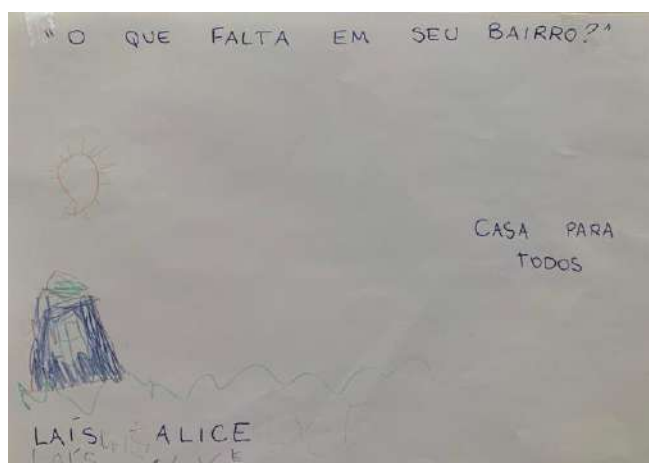 "O QUE FALTA EM SEU BAIRRO?"
CASA PARA
TODOS
LAÍS ALICE
LAÍS